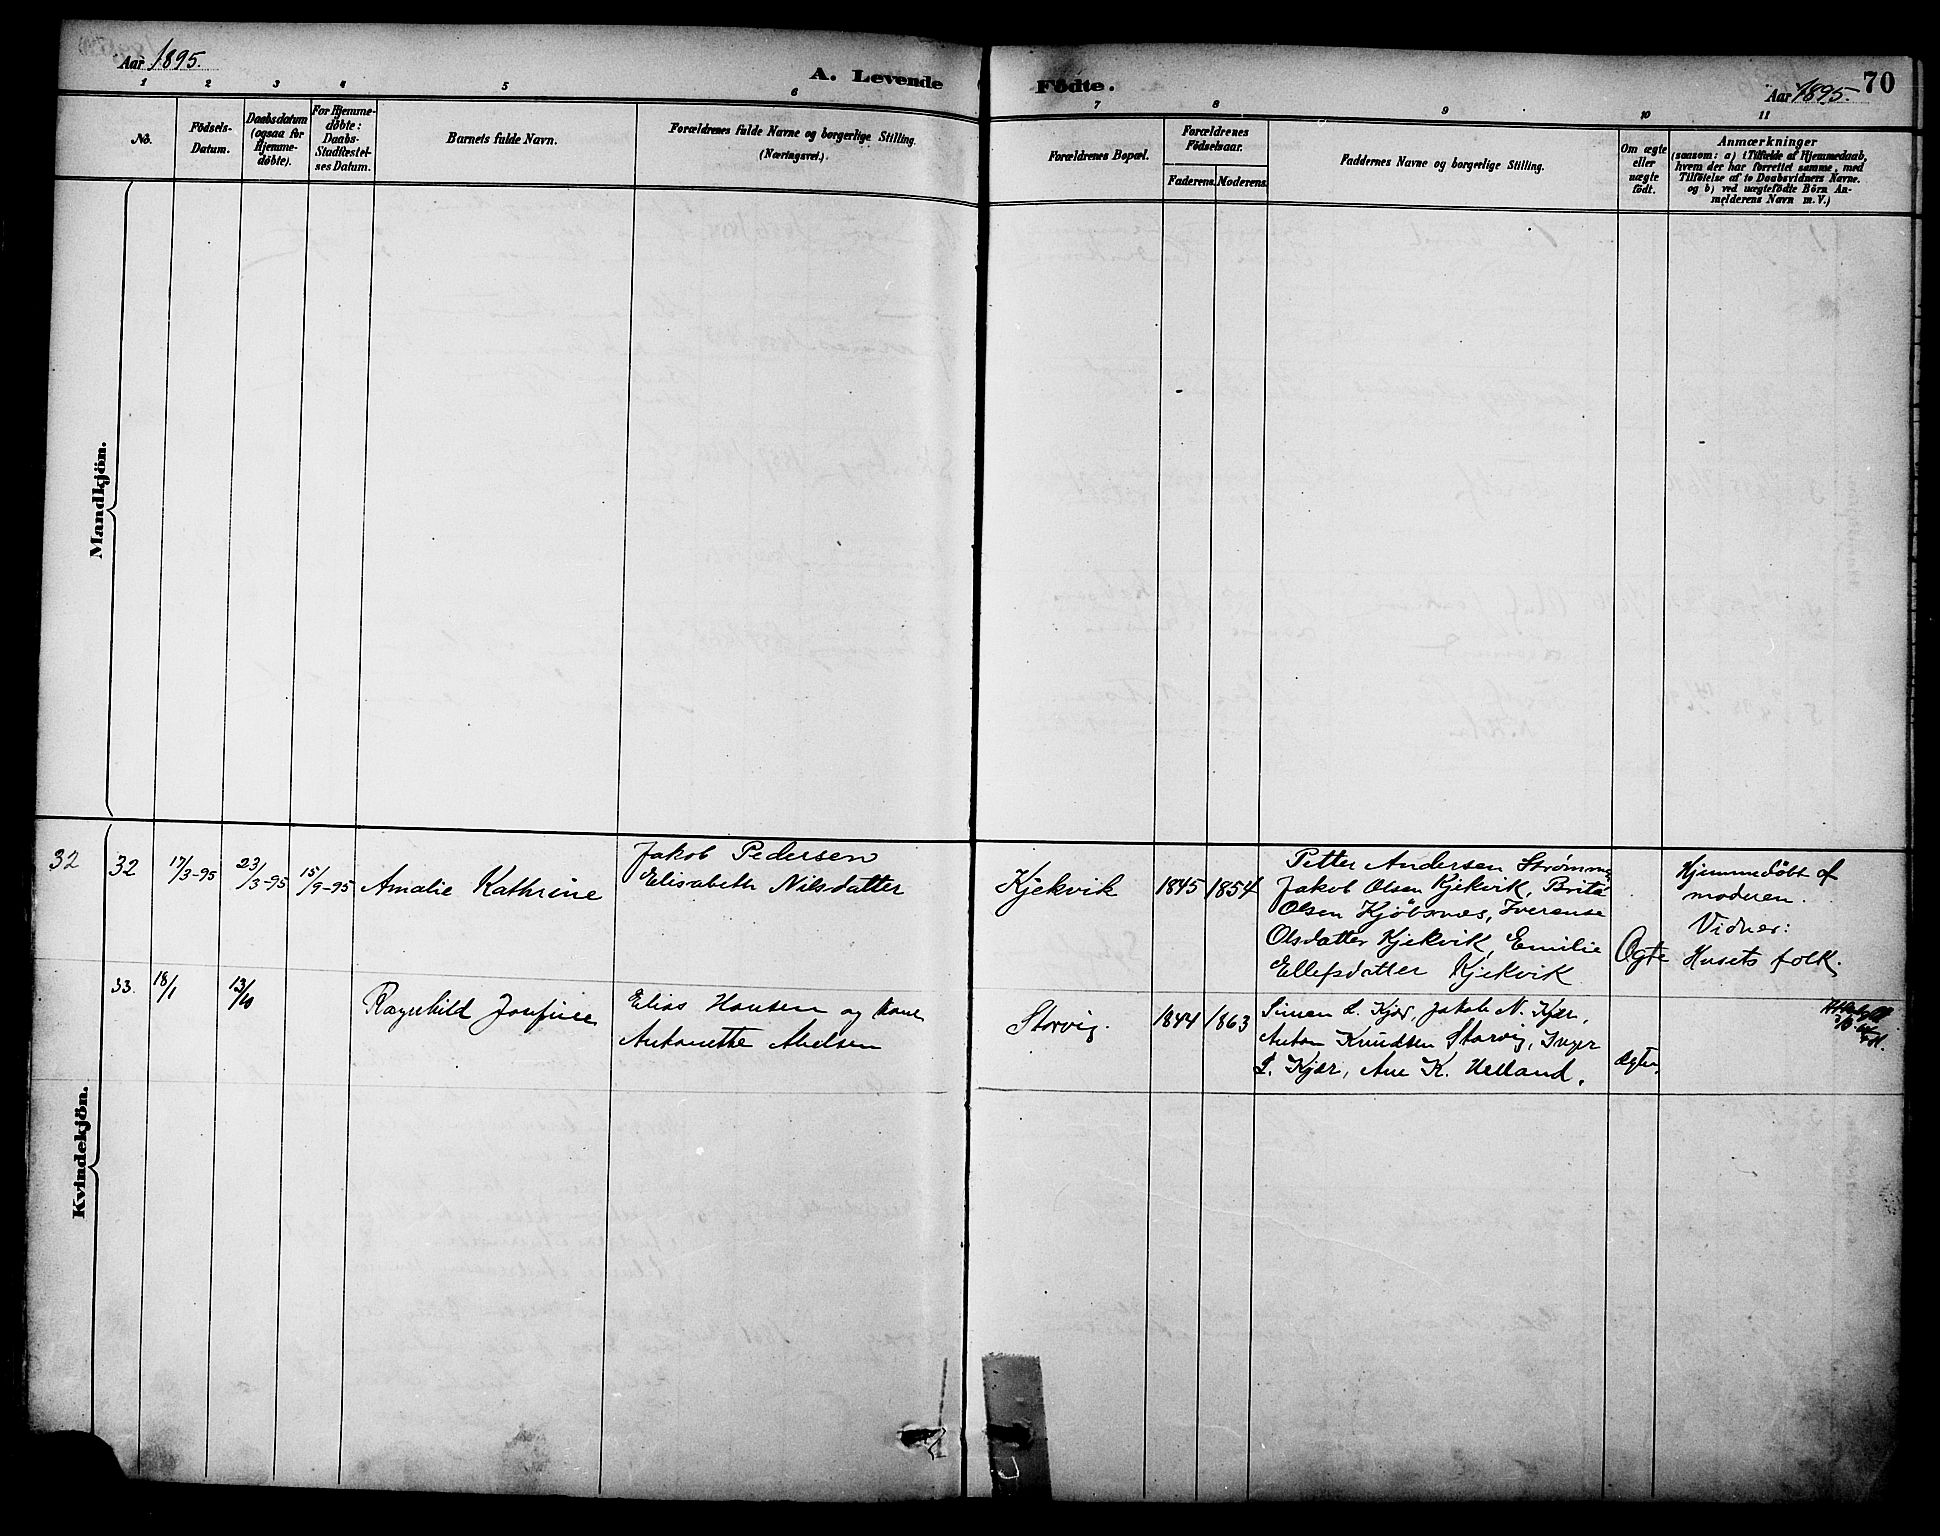 Aar 1895.
A. Levende Födte.
Aar 1895.
70
1 2 3 4 5 6 7 8 9 10 11
No.
Födsels-
Datum.
Daabsdatum
(ogsaa for
Hjemme-
döbte).
For Hjemme-
døbte:
Daabs-
Stadfæstel-
ses Datum.
Barnets fulde Navn.
Forældrenes fulde Navne og borgerlige Stilling.
(Næringsvei.)
Forældrenes Bopæl.
Forældrenes
Födselsaar.
Faderens. Moderens.
Faddernes Navne og borgerlige Stilling.
Om ægte
eller
uægte
födt.
Anmærkninger
(saasom: a) i Tilfælde af Hjemmedaab,
hvem der har forrettet samme, med
Tilföielse af to Daabsvidners Navne.
og b) ved uægtefödte Börn An-
melderens Navn m.V.)
Mandkjön.
Kvindekjön.
32
32
17/3-95
23/3-95
15/9-95
Amalie Kathrine
Jakob Pedersen
Elisabeth Nilsdatter
Kjekvik
1845
1854
Petter Andersen Strømme
Jakob Olsen Kjekvik, Brita
Olsen Kjöbsnæs, Iverense
Olsdatter Kjekvik, Emilie
Ellefsdatter Kjekvik
Ogte
Hjemmedöbt af
moderen.
Vidner:
Husets folk.
33.
18/1
13/10
Ragnhild Josefine
Elias Hansen og kone
Antonette Abelsen
Storvig.
1844
1863
Simen L. Kjær, Jakob N. Kjær,
Anton Knudsen Storvig, Inger
L. Kjær, Ane K. Helland.
ægte.